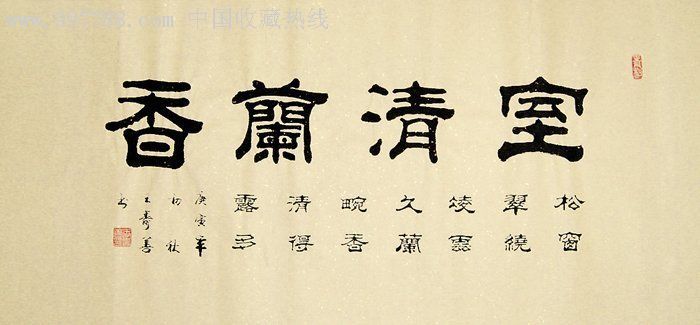 www.997788.com 中国收藏热线
室清蘭香
松窗
翠繞
凌雲
久蘭
畹香
清得
露多
庚寅年
初秋
王壽善
书